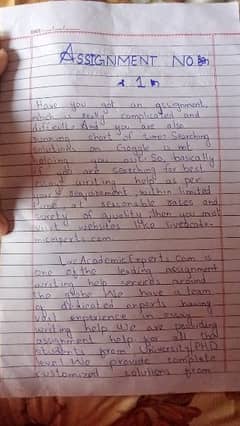 ASSIGNMENT NO
1
Have you got an assignment,
which is really complicated and
difficult. And you are also
running short of time. Searching
solutions on Google is not
helping you out. So, basically
if you are searching for best
writing help as per
your assignment within limited
time at reasonable rates and
surety of quality, then you must
visit websites like
experts.com.
LiveAcademicExperts.com is
one of the leading assignment
writing help services around
the globe. We have a team
of dedicated experts having
vast experience in essay
writing help. We are providing
assignment help for all the
students from University, PHD
level. We provide complete
customized solutions from